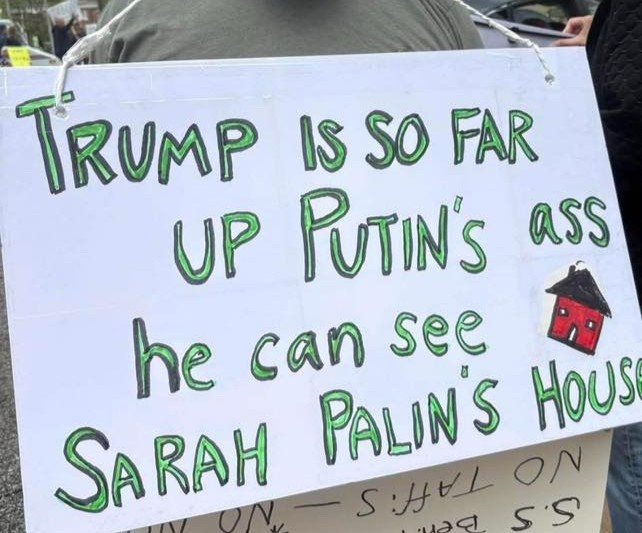 TRUMP IS SO FAR
UP PUTIN'S ass
he can see
SARAH PALIN'S HOUSE
NO
S.S